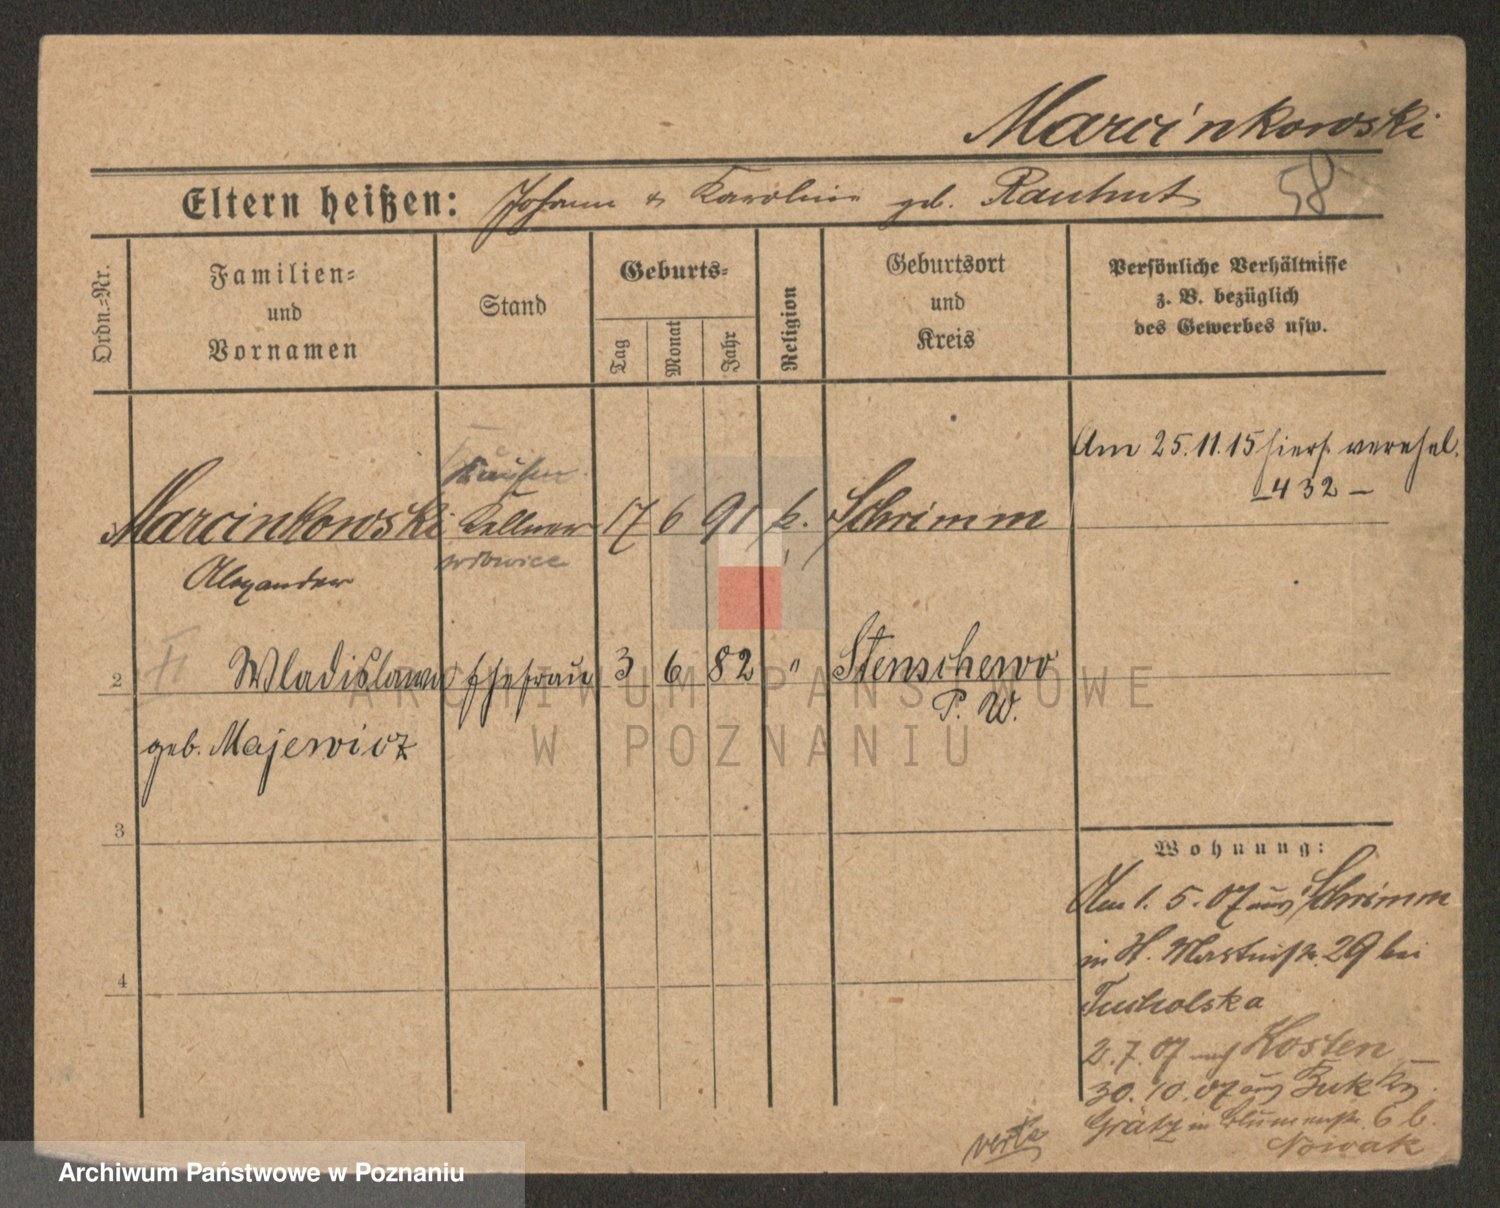 Marcinkowski
Eltern heißen: Johann & Karoline geb. Rauhut 58
Ordn.-Nr.
Familien-
und
Vornamen
Stand
Geburts-
Tag
Monat
Jahr
Religion
Geburtsort
und
Kreis
Persönliche Verhältnisse
z. B. bezüglich
des Gewerbes usw.
Am 25.11.15 hiers. verehel.
– 432 –
Marcinkowski Kellner 17 6 91 k. Schrimm
Alexander
2 Wladislawa Ehefrau 3 6 82 " Stenschewo
P. W.
geb. Majewicz
3
4
Wohnung:
Am 1. 5. 07 aus Schrimm
in H. 29 bei
Tucholska
2. 7. 07 nach Kosten –
30. 10. 07 aus
Grätz in Blumenstr. 6 b.
Nowak
verte
ARCHIWUM PAŃSTWOWE
W POZNANIU
Archiwum Państwowe w Poznaniu